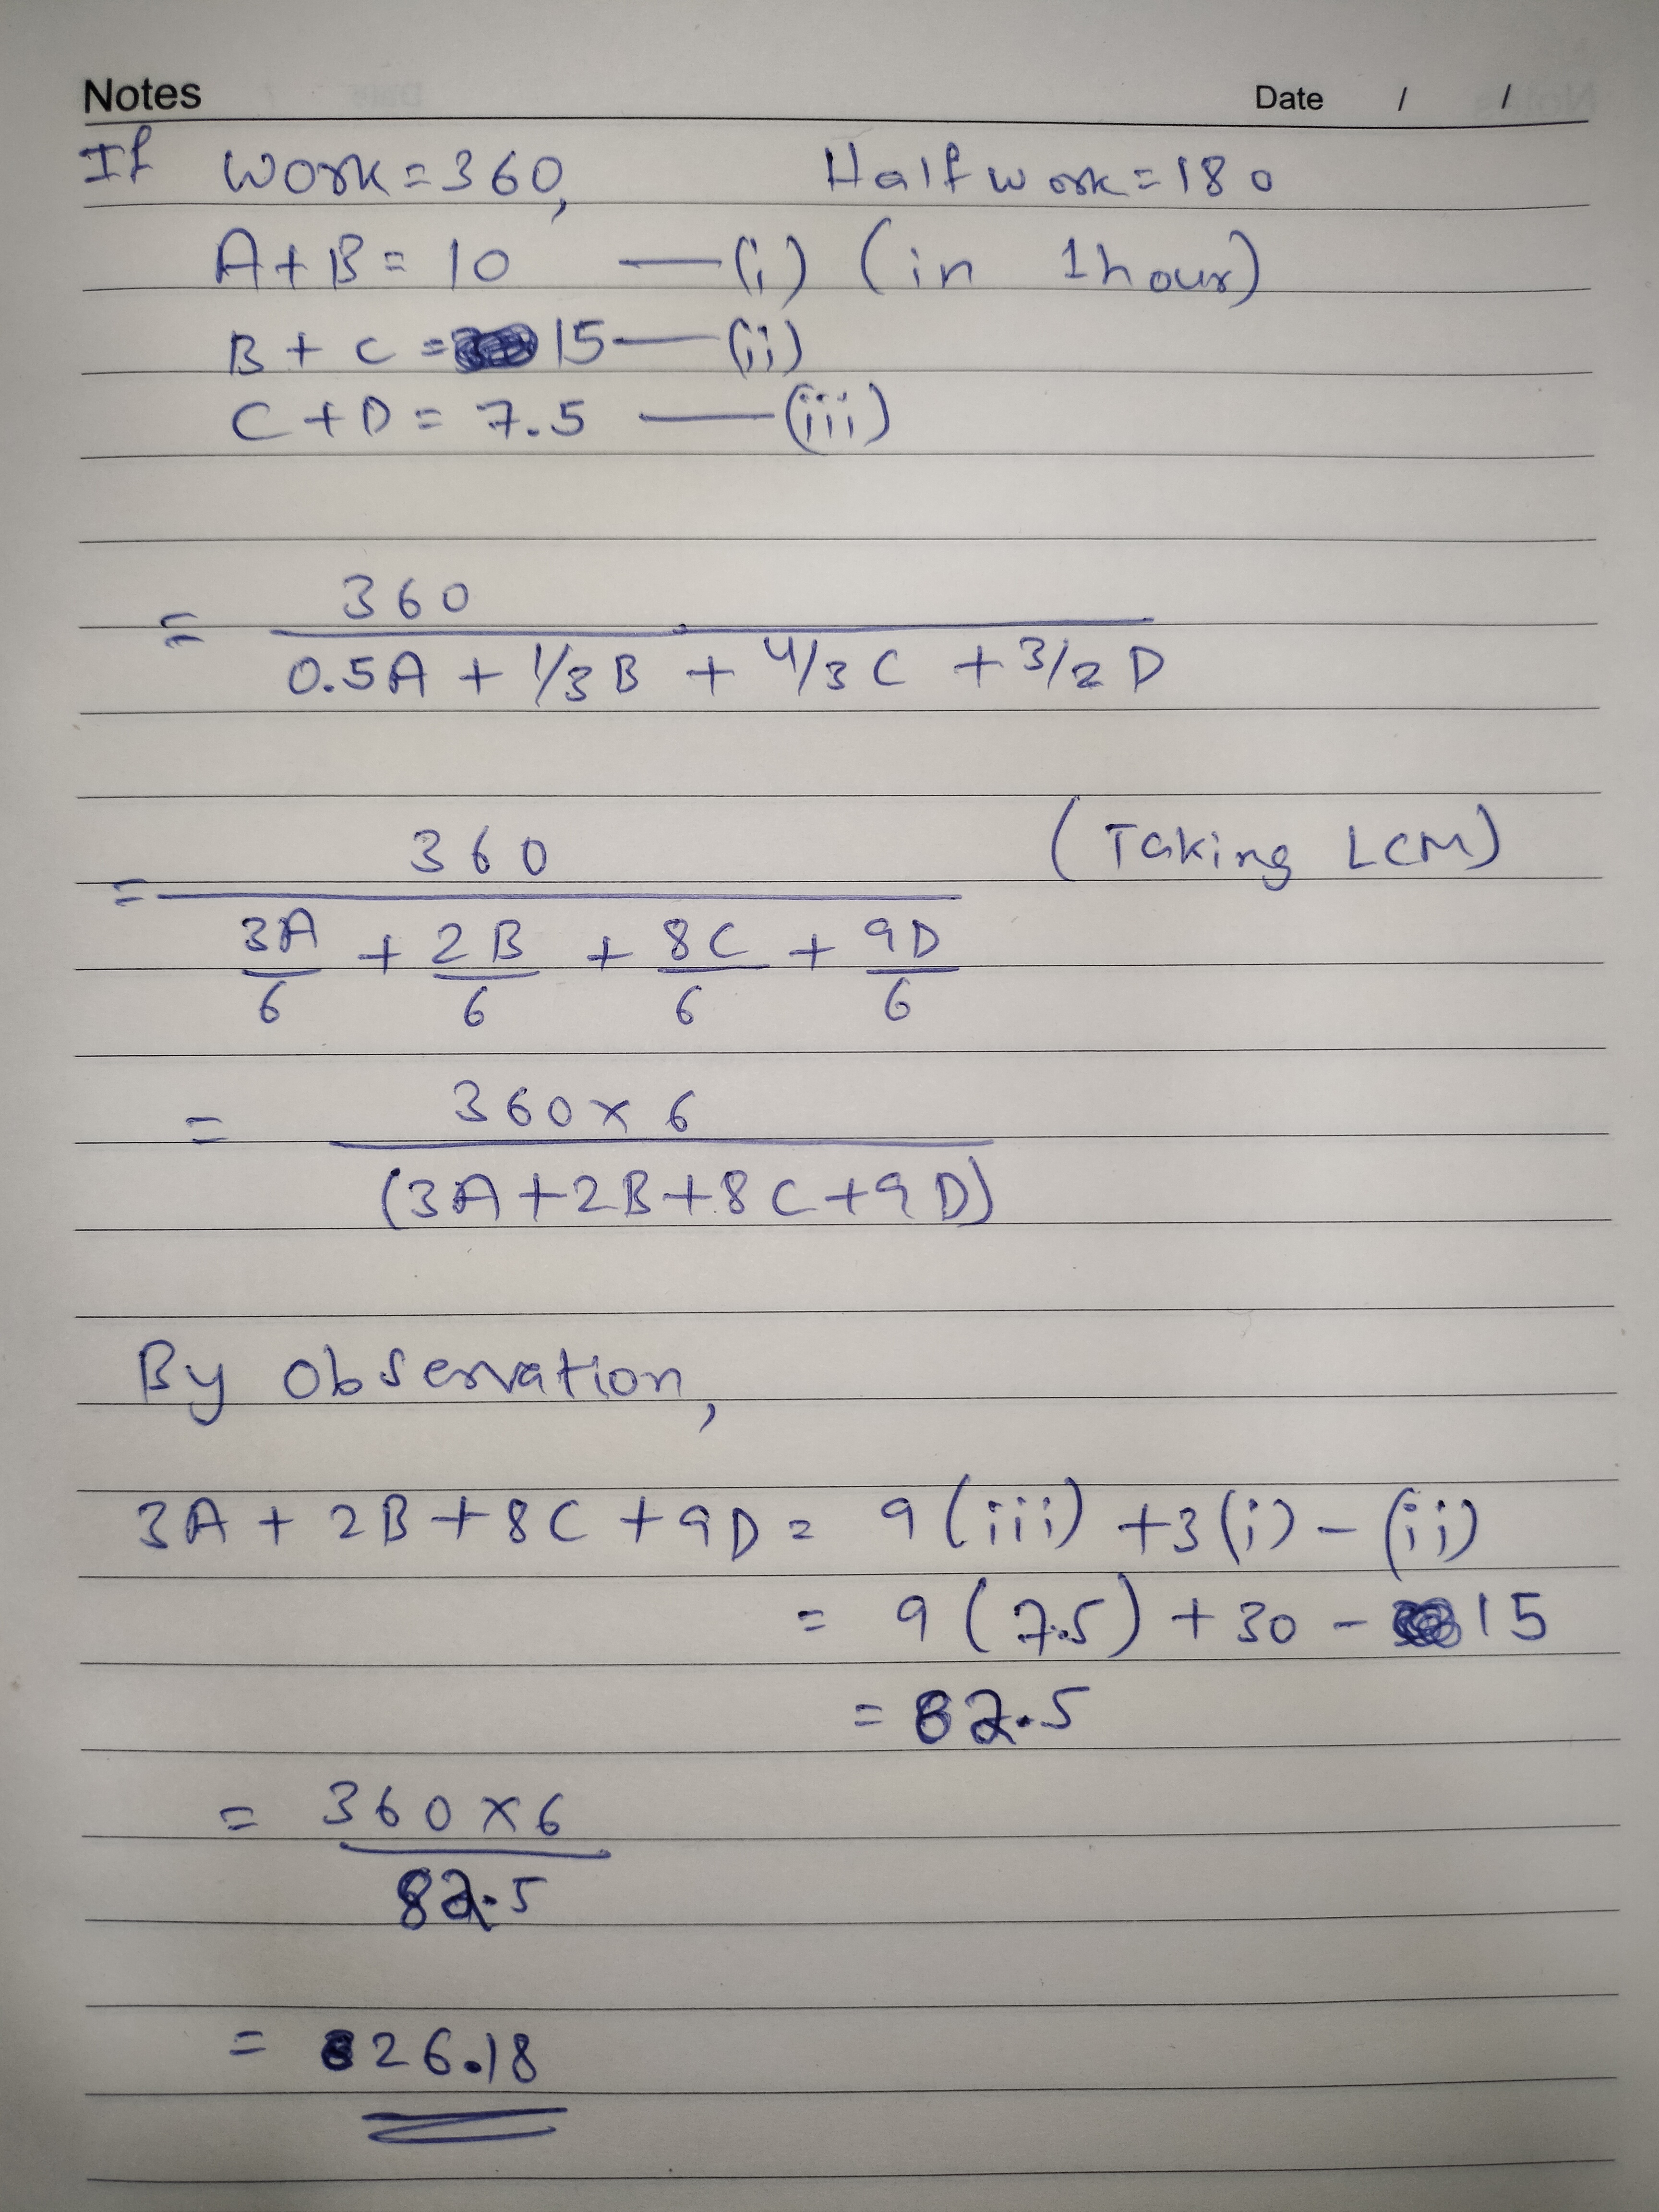 Notes Date / /
If work = 360, Half work = 180
A + B = 10 — (i) (in 1 hour)
B + C = 15 — (ii)
C + D = 7.5 — (iii)
= 360 / (0.5A + 1/3 B + 4/3 C + 3/2 D)
= 360 / (3A/6 + 2B/6 + 8C/6 + 9D/6) (Taking LCM)
= 360 × 6 / (3A + 2B + 8C + 9D)
By observation,
3A + 2B + 8C + 9D = 9 (iii) + 3 (i) - (ii)
= 9 (7.5) + 30 - 15
= 82.5
= 360 × 6 / 82.5
= 26.18